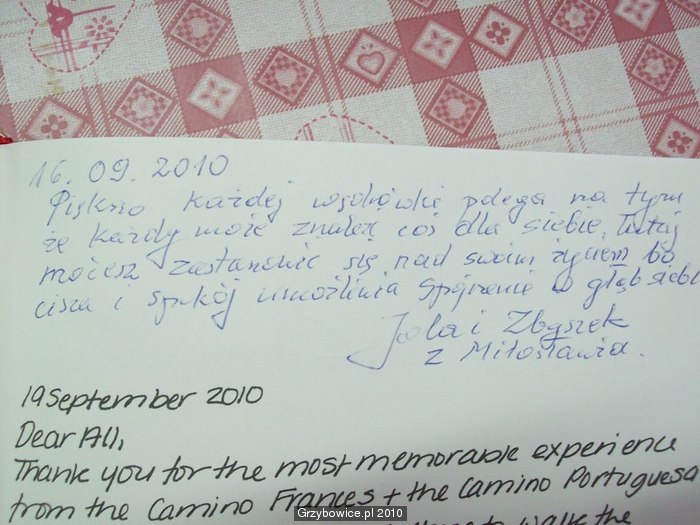 16. 09. 2010
Piękno każdej wędrówki polega na tym
że każdy może znaleź coś dla siebie. Tutaj
możesz zastanowić się nad swoim życiem bo
cisza i spokój umożliwia spojrzenie w głąb siebie
Jola i Zbyszek
z Miłosławia.
19 September 2010
Dear All,
Thank you for the most memorable experience
from the Camino Frances + the Camino Portuguesa
to walk the
Grzybowice.pl 2010